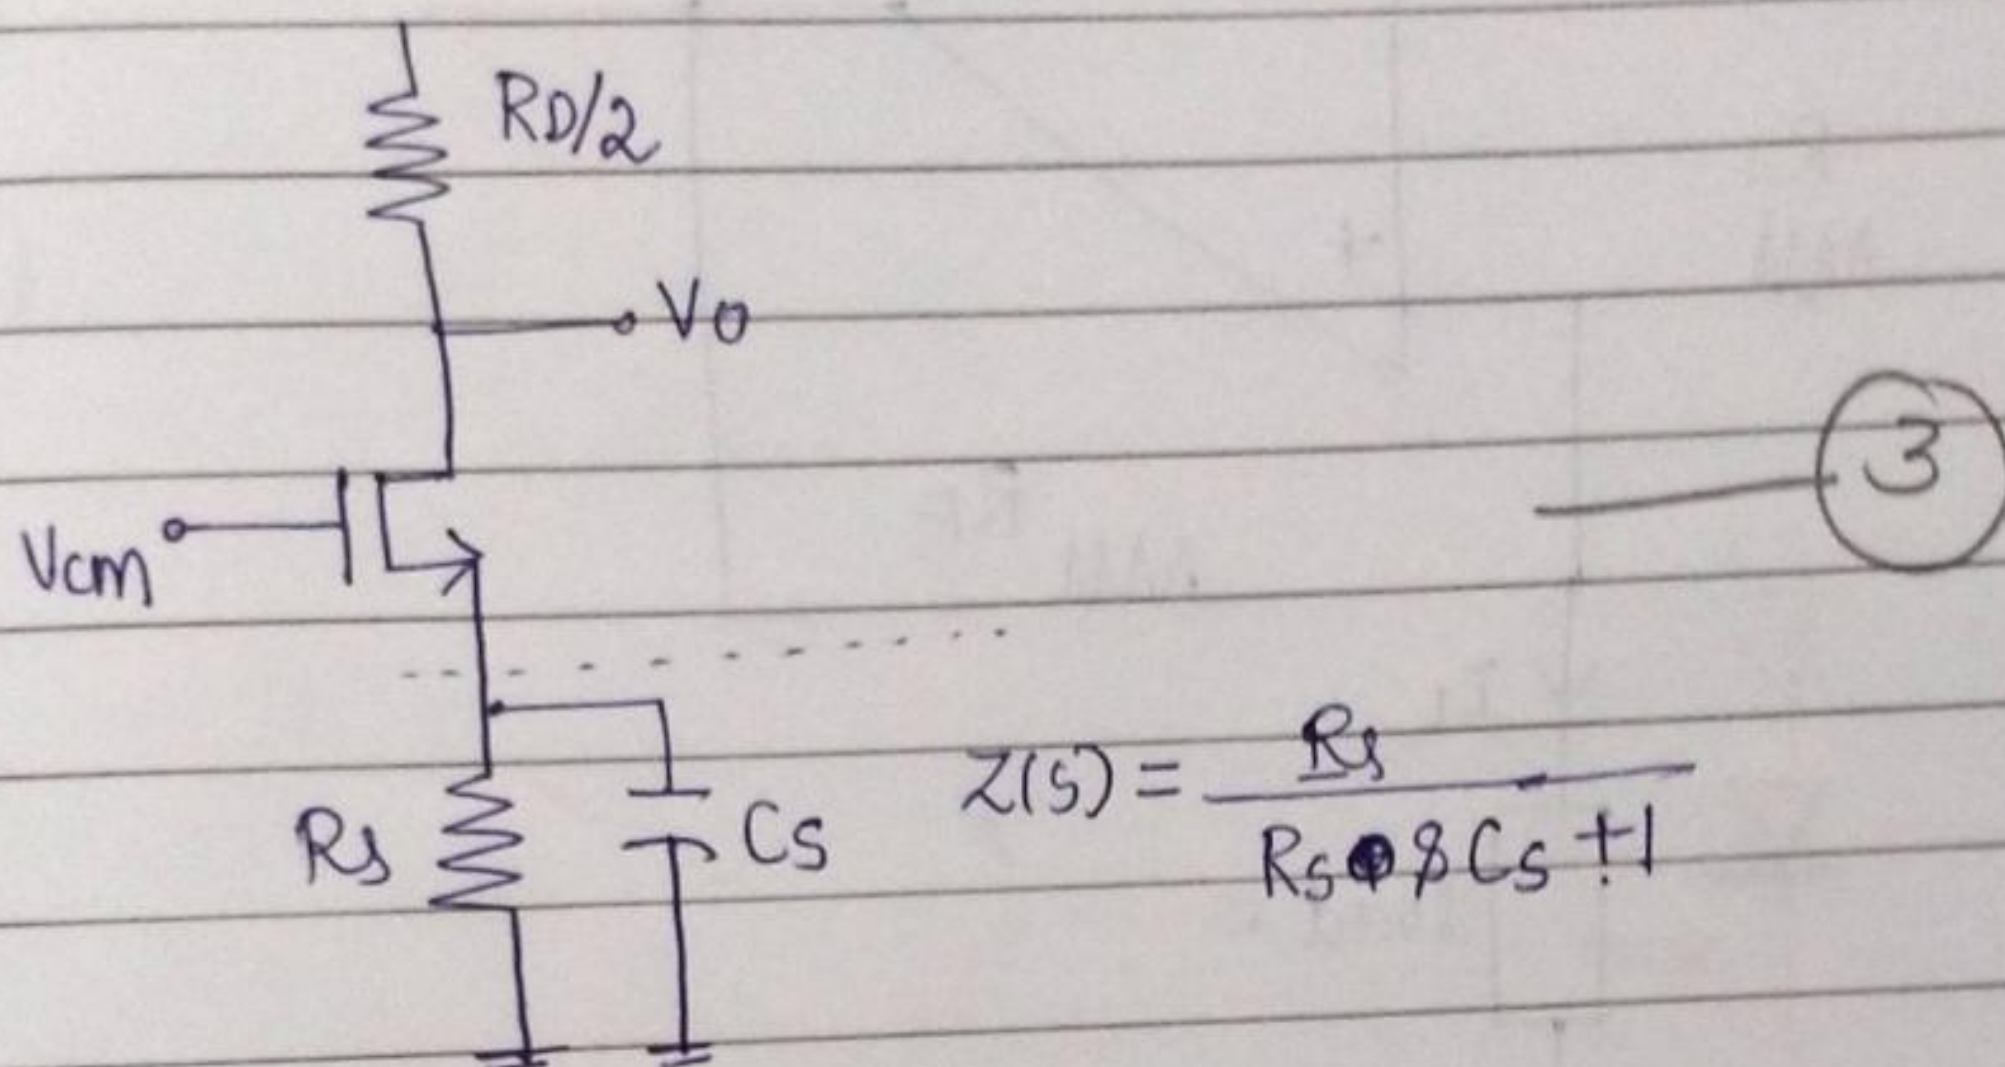 RD/2
Vo
3
Vcm
Rs
Cs
Z(s) = Rs / Rs sCs + 1